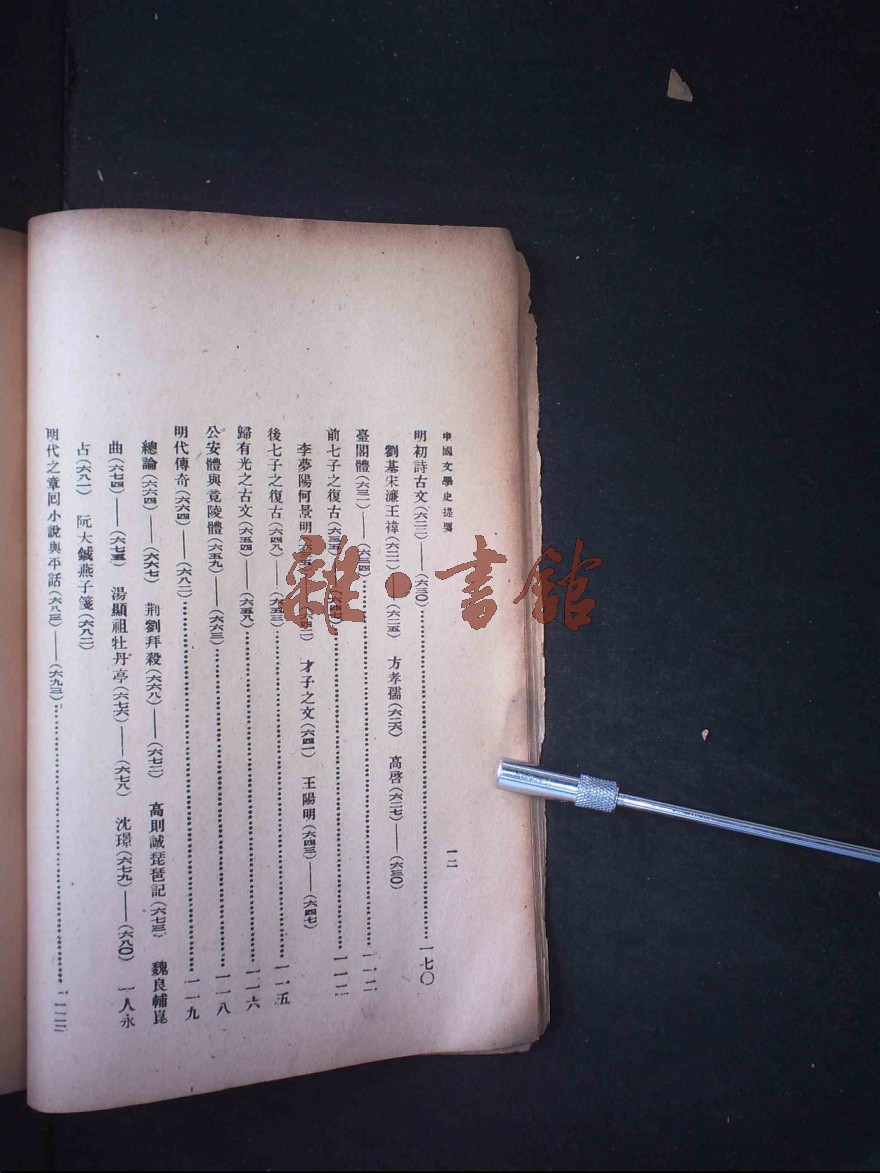 中國文學史提要
一二
明初詩古文(六二二)——(六三〇)⋯⋯一七〇
劉基宋濂王禕(六二二)——(六二五) 方孝儒(六二六) 高啓(六二七)——(六三〇)
臺閣體(六三一)——(六三四)⋯⋯一一二
前七子之復古(六三五)——(六四七)⋯⋯一一二
李夢陽何景明 才子之文(六四一) 王陽明(六四三)——(六四七)
後七子之復古(六四八)——(六五三)⋯⋯一一五
歸有光之古文(六五四)——(六五八)⋯⋯一一六
公安體與竟陵體(六五九)——(六六三)⋯⋯一一八
明代傳奇(六六四)——(六八二)⋯⋯一一九
總論(六六四)——(六六七) 荆劉拜殺(六六八)——(六七二) 高則誠琵琶記(六七三) 魏良輔崑
曲(六七四)——(六七五) 湯顯祖牡丹亭(六七六)——(六七八) 沈璟(六七九)——(六八〇) 一人永
占(六八一) 阮大鋮燕子箋(六八二)
明代之章回小說與平話(六八三)——(六九三)⋯⋯
雜·書館